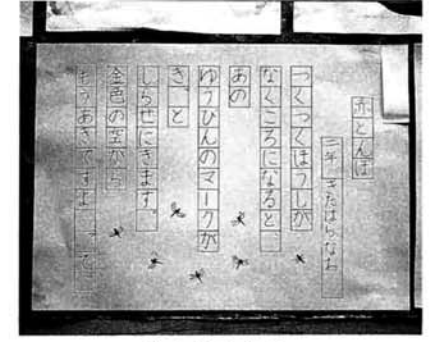 赤とんぼ
二年 きたはらなお
つくつくぼうしが
なくころになると、
あの
ゆうびんのマークが
きっと
しらせにきます。
金色の空から
もうあきですよ……って。